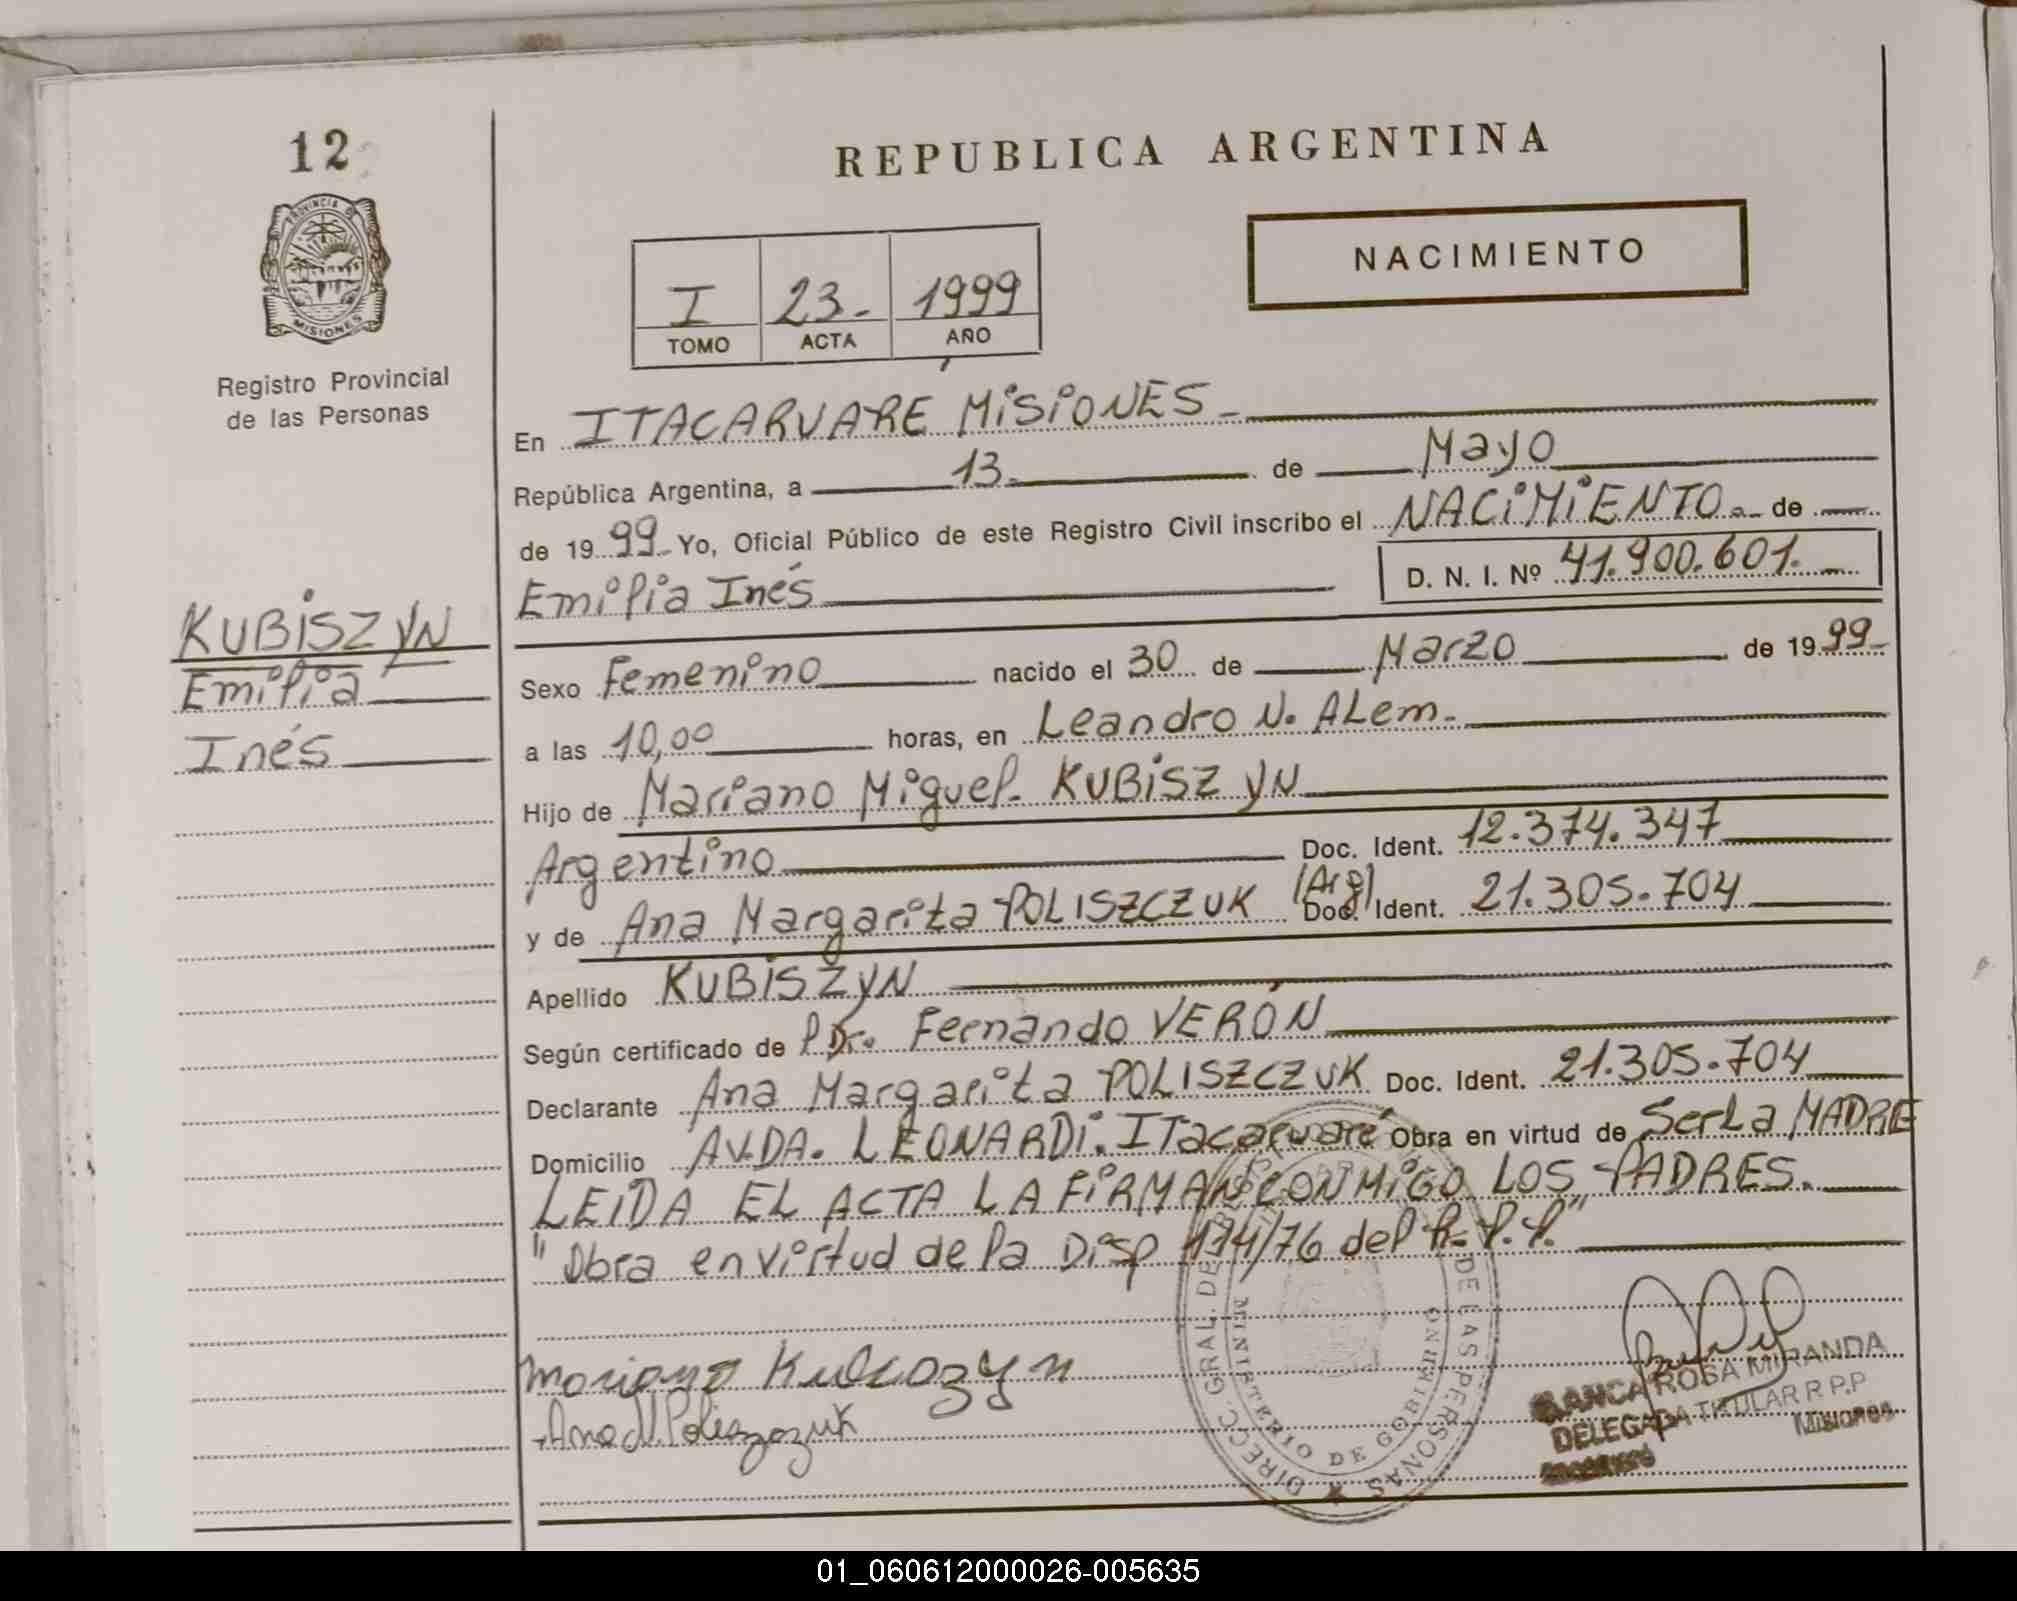 12
REPUBLICA ARGENTINA
PROVINCIA DE
MISIONES
NACIMIENTO
I 23.- 1999
TOMO ACTA AÑO
Registro Provincial
de las Personas
En ITACARUARÉ MISIONES.-
República Argentina, a 13.- de Mayo
de 1999.- Yo, Oficial Público de este Registro Civil inscribo el NACIMIENTO.- de
Emilia Inés D. N. I. Nº 41.900.601.-
KUBISZYN
Emilia
Inés
Sexo Femenino nacido el 30 de Marzo de 1999-
a las 10,00 horas, en Leandro N. ALem.-
Hijo de Mariano Miguel KUBISZYN
Argentino Doc. Ident. 12.374.347
y de Ana Margarita POLISZCZUK (Arg) Doc. Ident. 21.305.704
Apellido KUBISZYN
Según certificado de Dr. Fernando VERÓN
Declarante Ana Margarita POLISZCZUK Doc. Ident. 21.305.704
Domicilio AVDA. LEONARDI. ITacaruaré Obra en virtud de Ser La MADRE
LEIDA EL ACTA LA FIRMAN CONMIGO LOS PADRES.
"Obra en virtud de la Disp 174/76 del R.P.P."
Mariano Kubiszyn
Ana M Poliszczuk
DIRECC. GRAL. DE DE LAS PERSONAS
MINISTERIO DE GOBIERNO
BLANCA ROSA MIRANDA
DELEGADA TITULAR R.P.P
Misiones
01_060612000026-005635